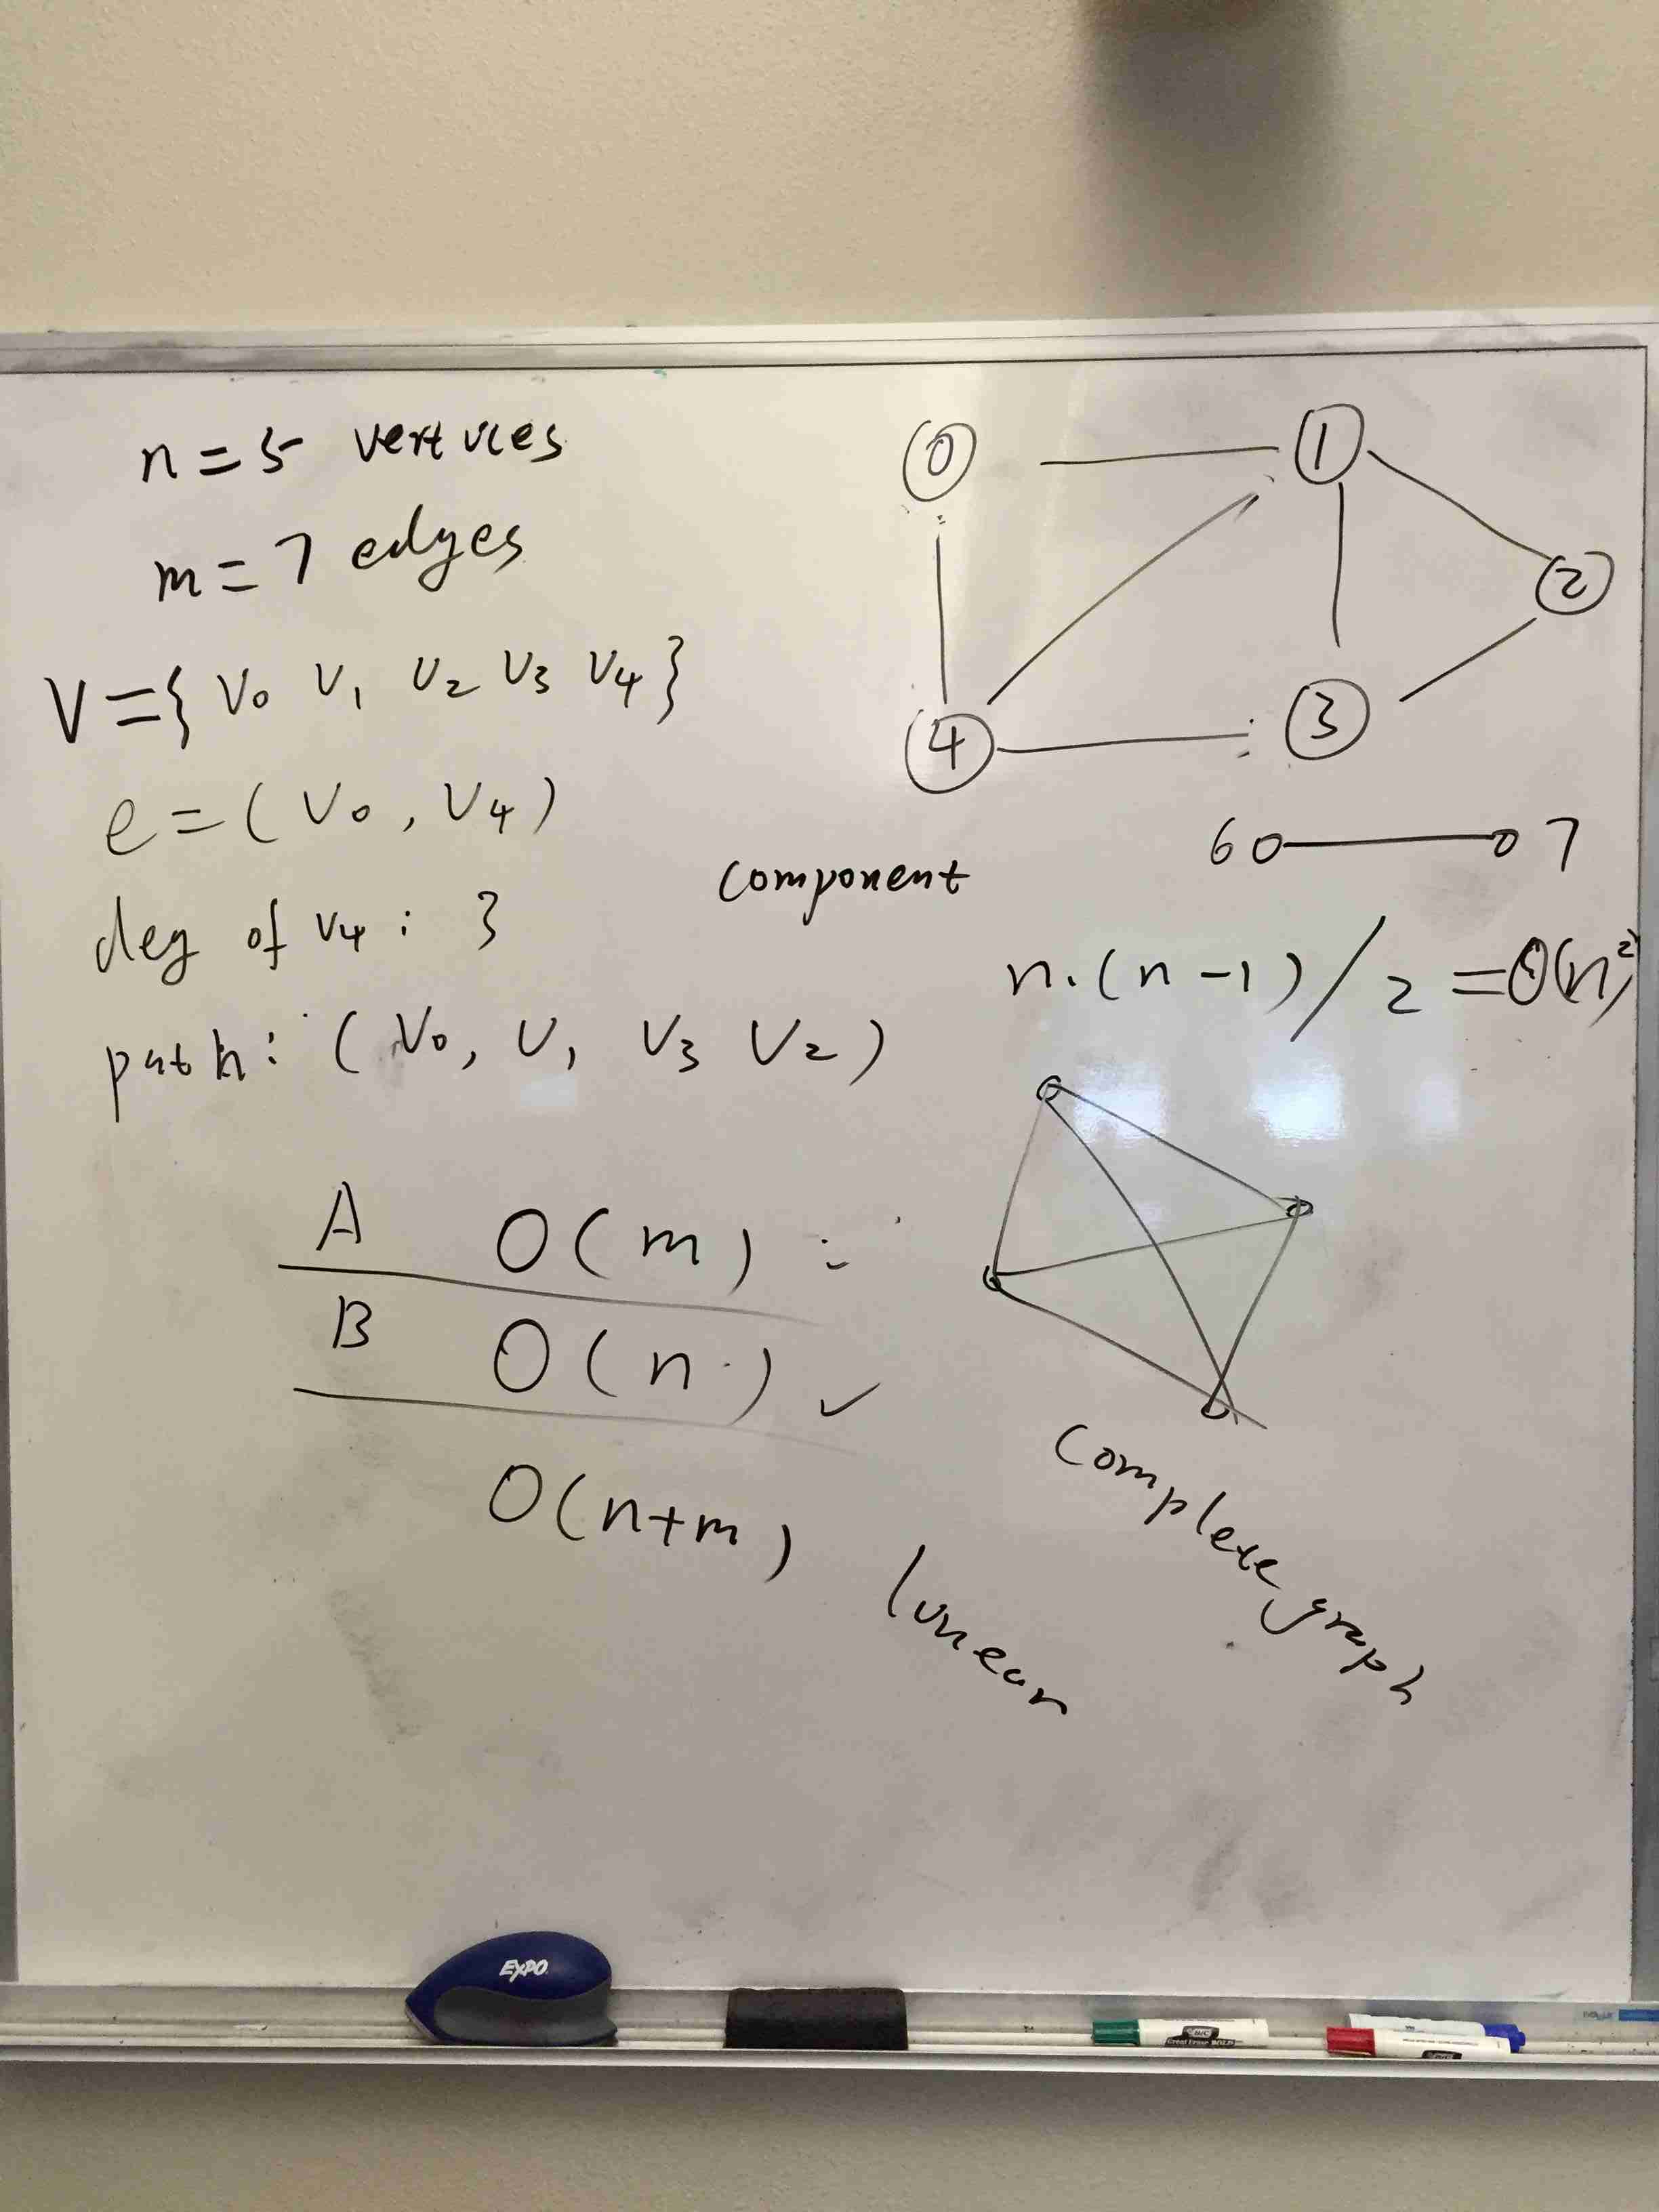 n = 5 vertices
m = 7 edges
V = { V0 V1 V2 V3 V4 }
e = ( V0 , V4 )
deg of V4 : 3
path : ( V0, V1 V3 V2 )
0
1
2
4
3
6 7
component
n.(n-1)/2 = O(n²)
A O(m)
B O(n) ✓
O(n+m) linear
complete graph
EXPO
BIC
Great Erase BOLD